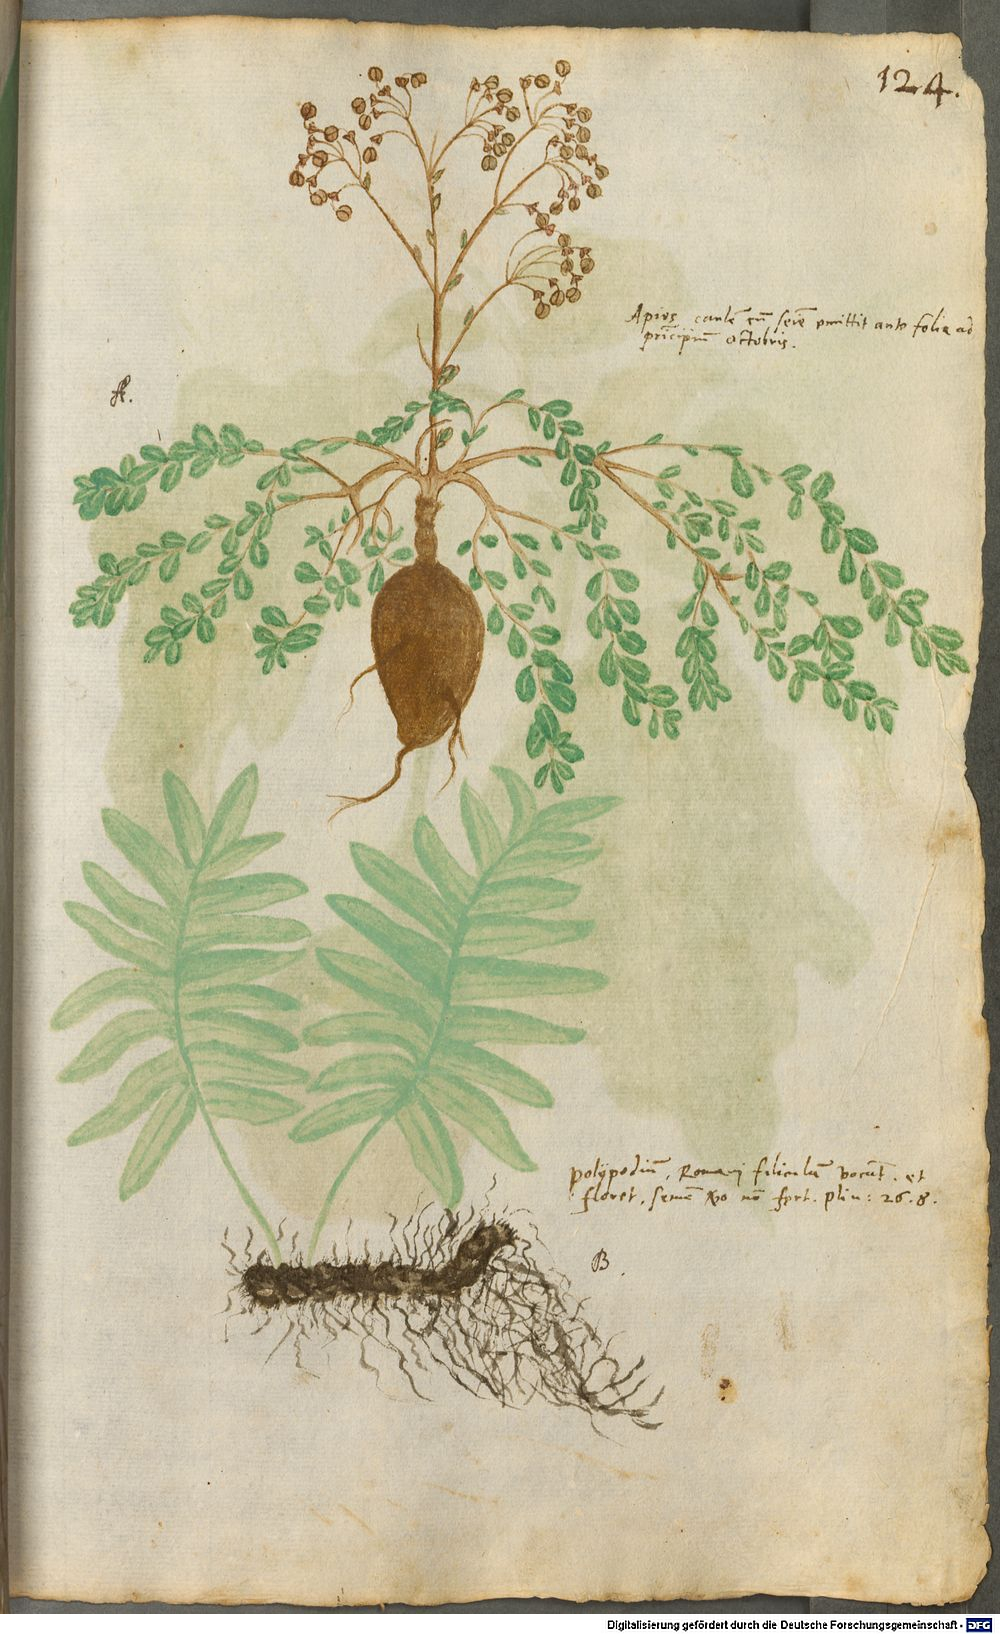 124.
Apios caulē cū sem̄ emittit ante folia ad
prīcipiū octobris.
A.
polÿpodiū, Romani filiculā vocāt. et
floret, semē vo nō fert. plin: 26.8.
B
Digitalisierung gefördert durch die Deutsche Forschungsgemeinschaft - DFG